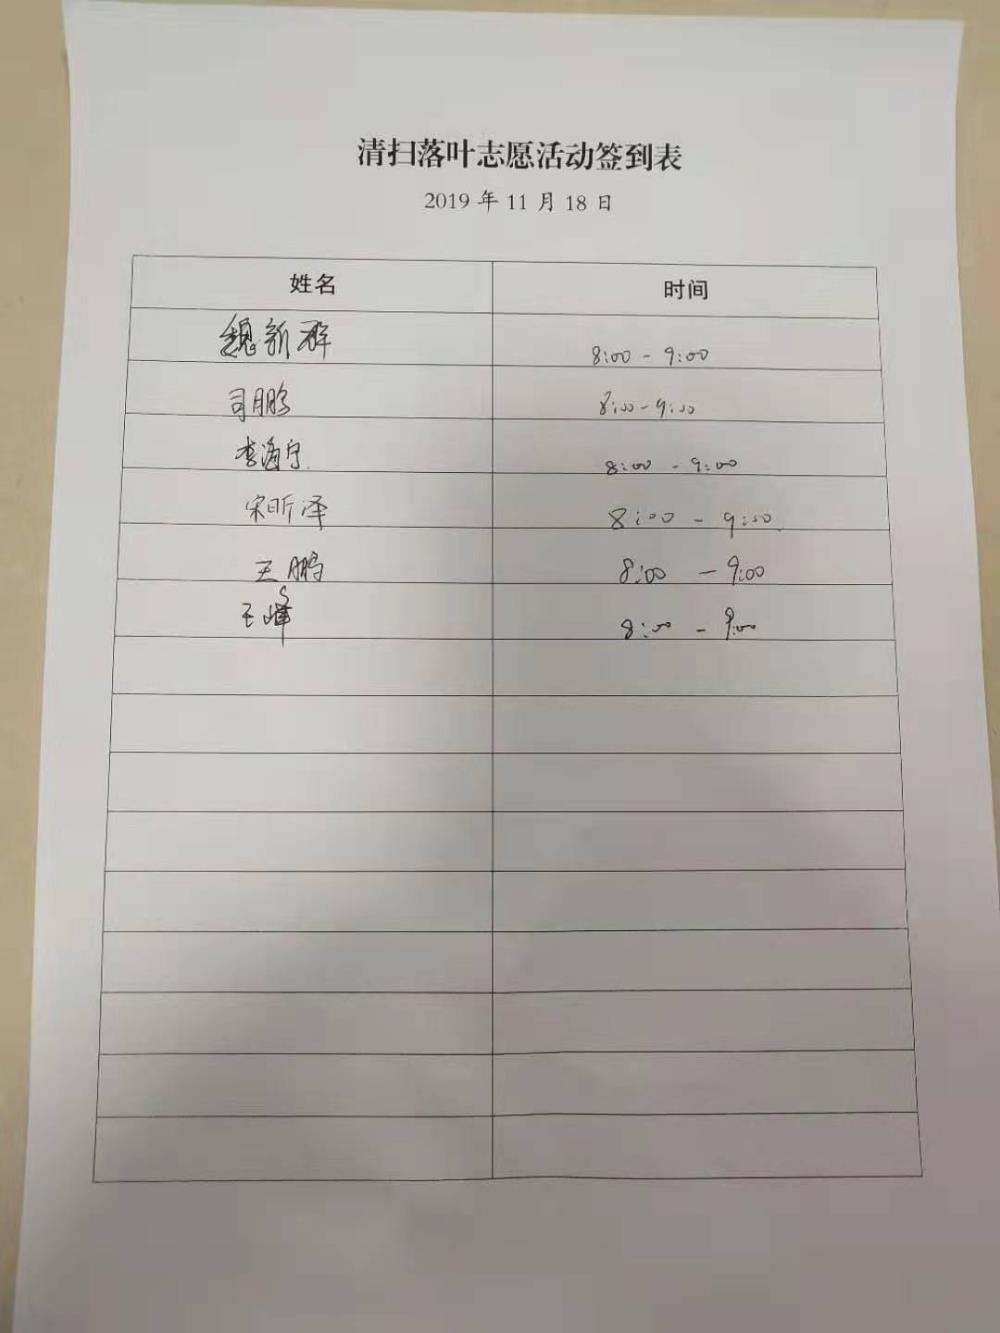 清扫落叶志愿活动签到表
2019 年 11 月 18 日
姓名 时间
魏新群 8:00 - 9:00
司鹏 8:00 - 9:00
李海宁 8:00 - 9:00
宋昕泽 8:00 - 9:00
王鹏 8:00 - 9:00
王峰 8:00 - 9:00